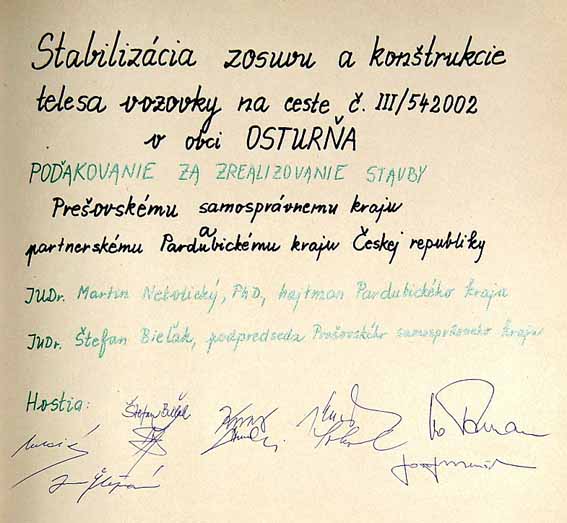 Stabilizácia zosuvu a konštrukcie
telesa vozovky na ceste č. III/542002
v obci OSTURŇA
POĎAKOVANIE ZA ZREALIZOVANIE STAVBY
Prešovskému samosprávnemu kraju
a
partnerskému Pardubickému kraju Českej republiky
JUDr. Martin Netolický, PhD, hejtman Pardubického kraja
JUDr. Štefan Bieľak, podpredseda Prešovského samosprávneho kraja
Hostia:
Štefan Bieľak